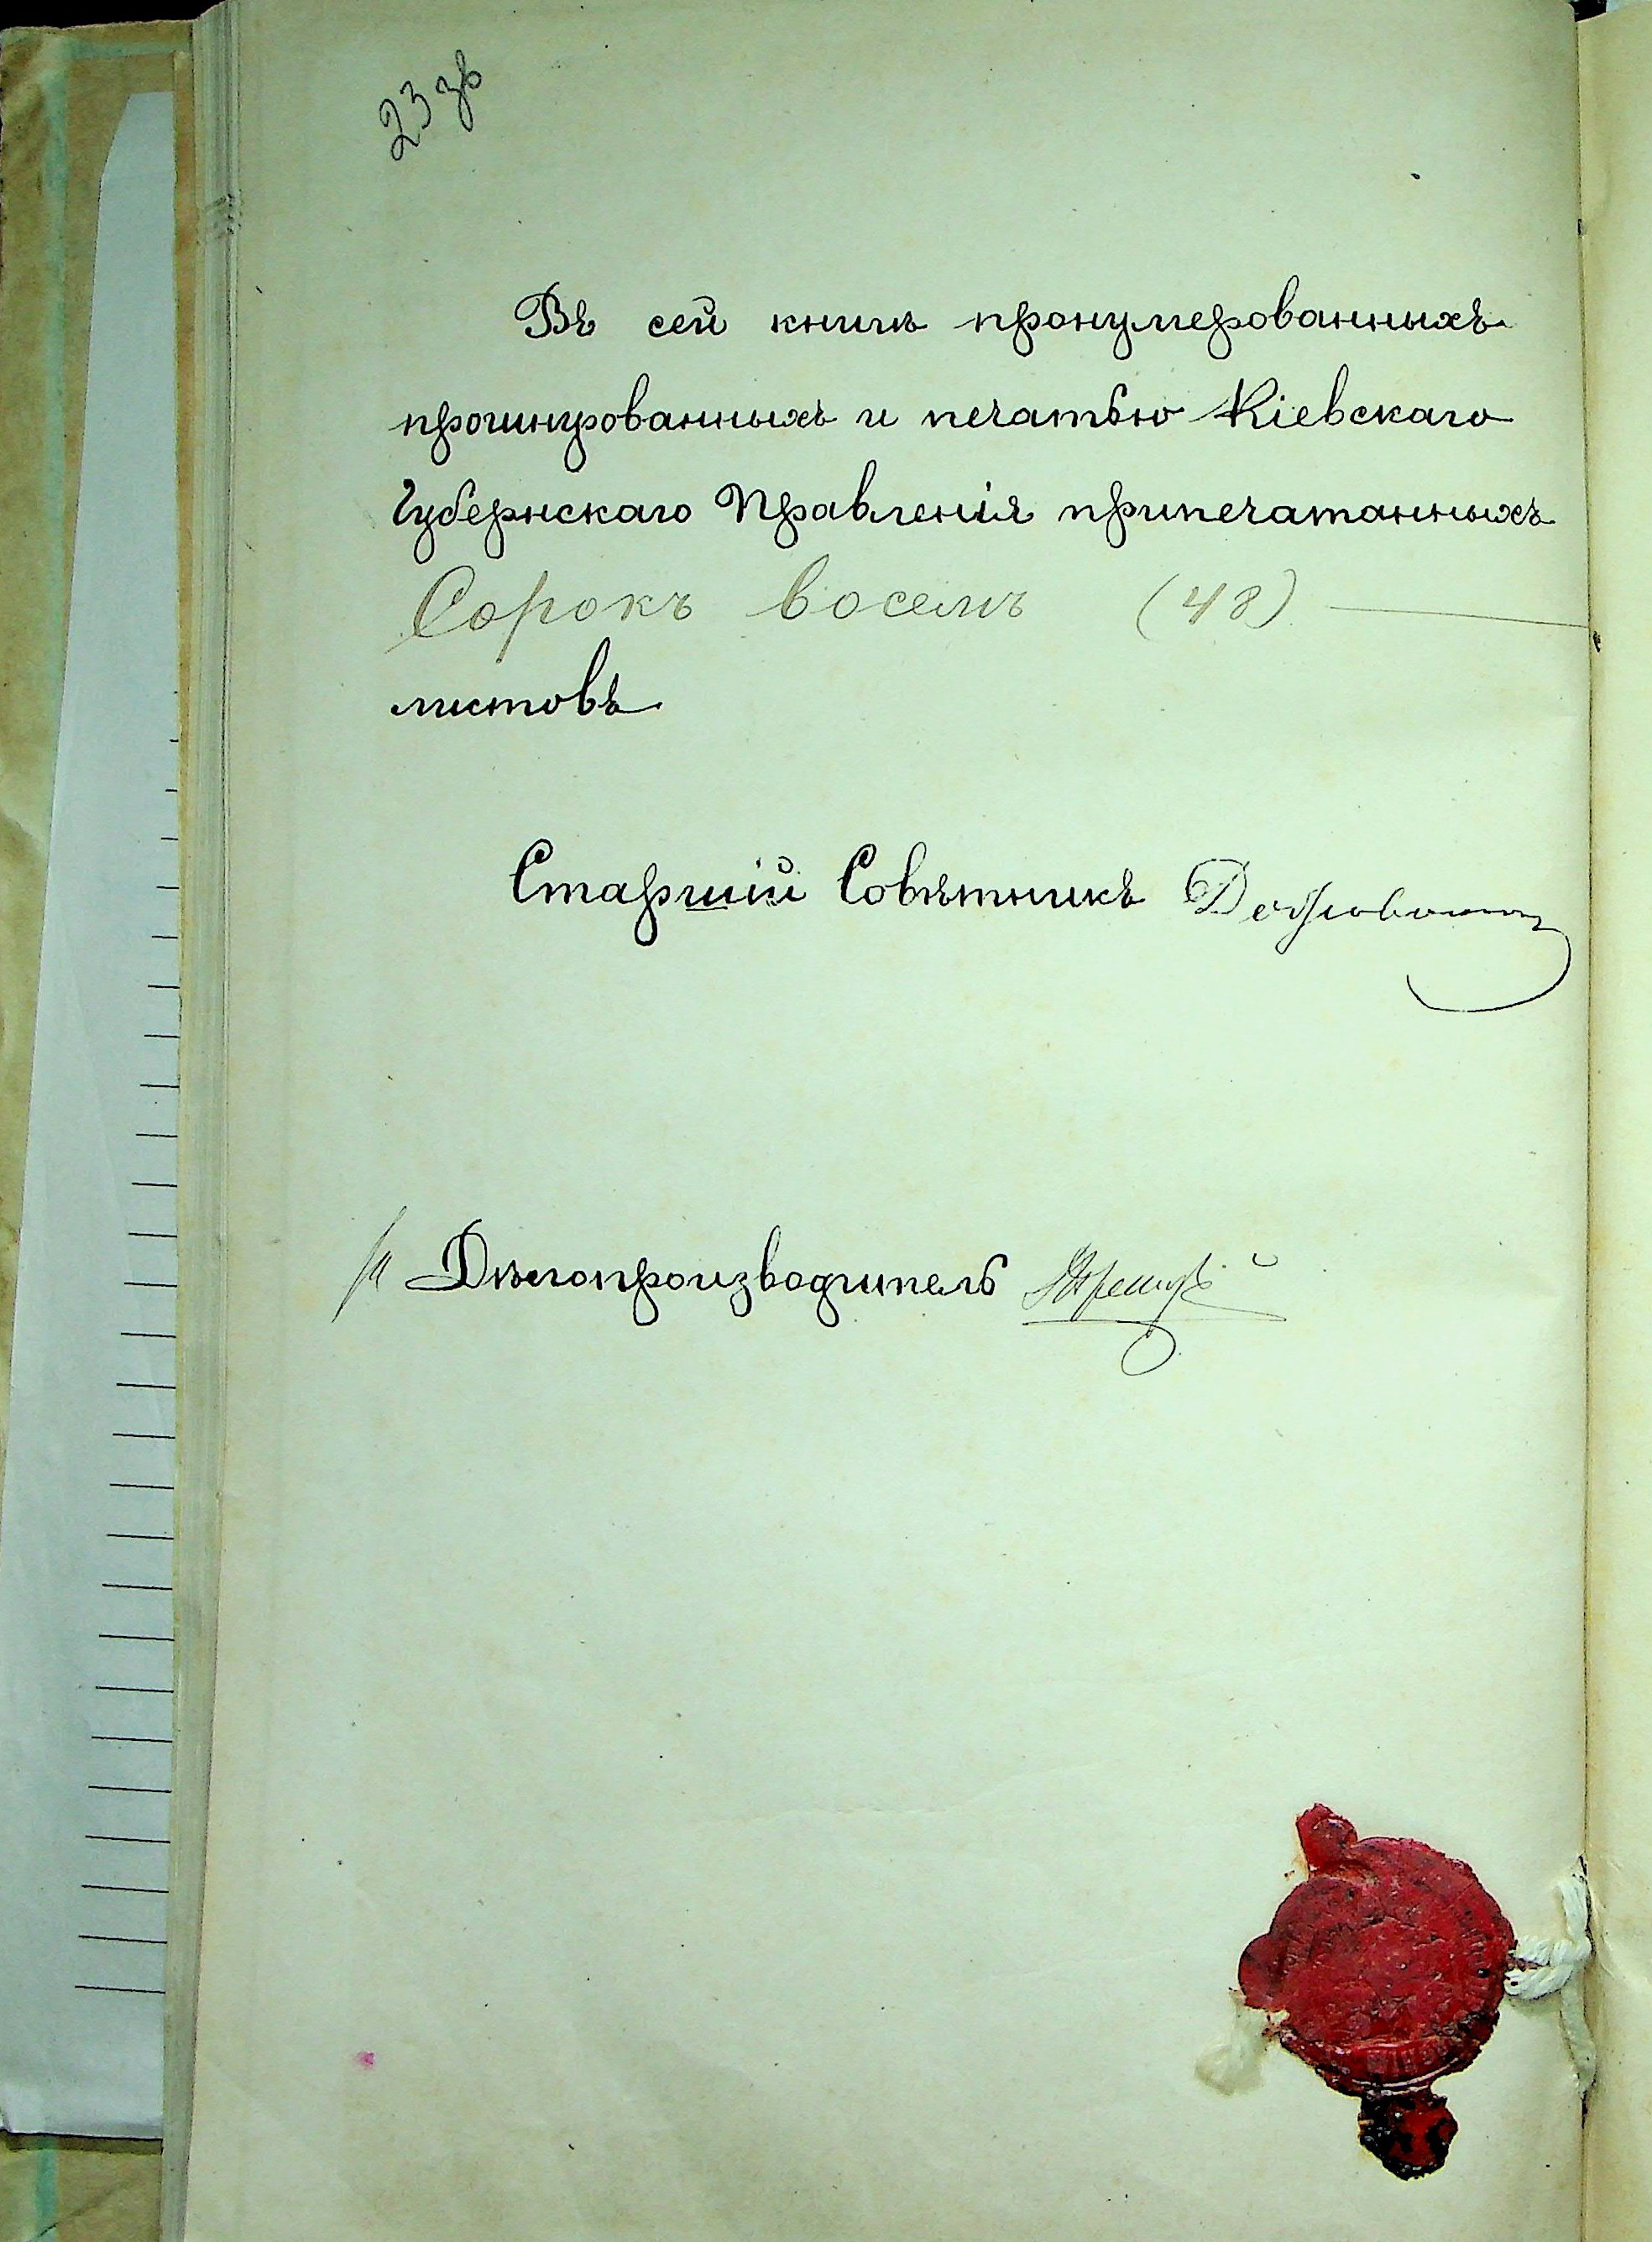 23 зв
Въ сей книгѣ пронумерованныхъ
прошнурованныхъ и печатью Кіевскаго
Губернскаго Правленія припечатанныхъ
Сорокъ восемъ (48)
листовъ
Старшій Совѣтникъ
Дѣлопроизводитель